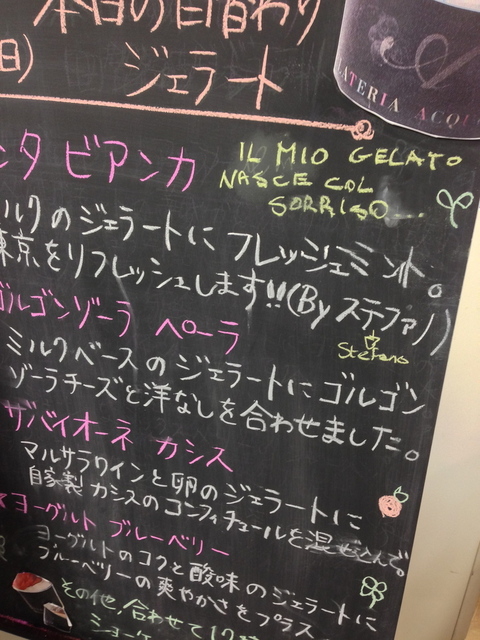 本日の日替わり
日)
ジェラート
LATERIA ACQU
ンタ ビアンカ
IL MIO GELATO
NASCE COL
SORRISO...
ミルクのジェラートに フレッシュミント。
東京をリフレッシュします!!(By ステファノ)
Stefano
ゴルゴンゾーラ ペーラ
ミルクベースの ジェラートに ゴルゴン
ゾーラチーズと洋なしを合わせました。
ザバイオーネ カシス
マルサラワインと卵のジェラートに
自家製 カシスのコンフィチュールを混ぜ込んで。
ヨーグルト ブルーベリー
ヨーグルトのコクと酸味のジェラートに
ブルーベリーの爽やかさをプラス
その他!合わせて12種
ショーケ